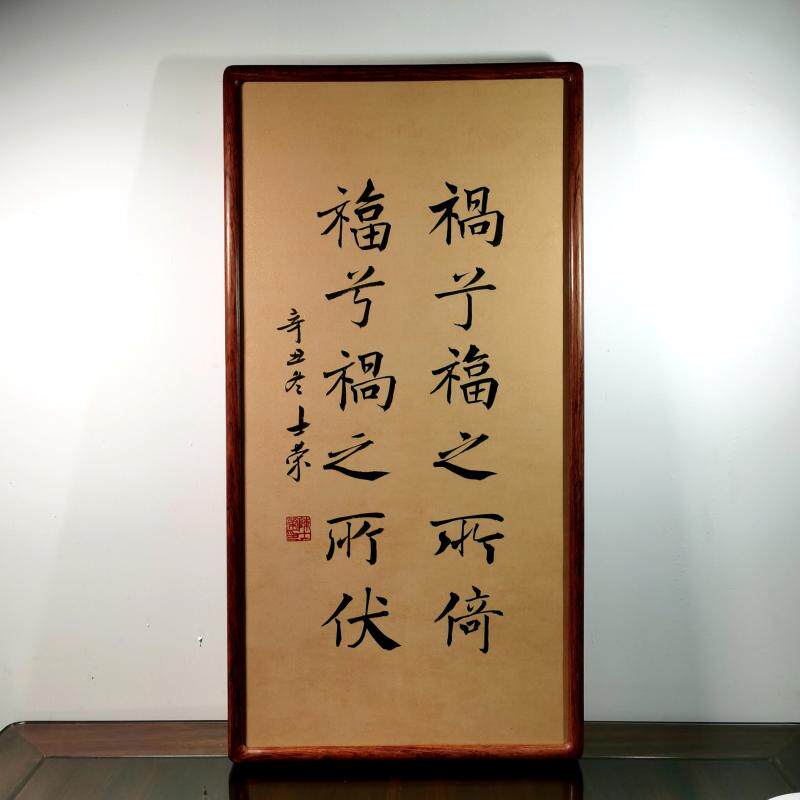 禍兮福之所倚
福兮禍之所伏
辛丑冬士榮